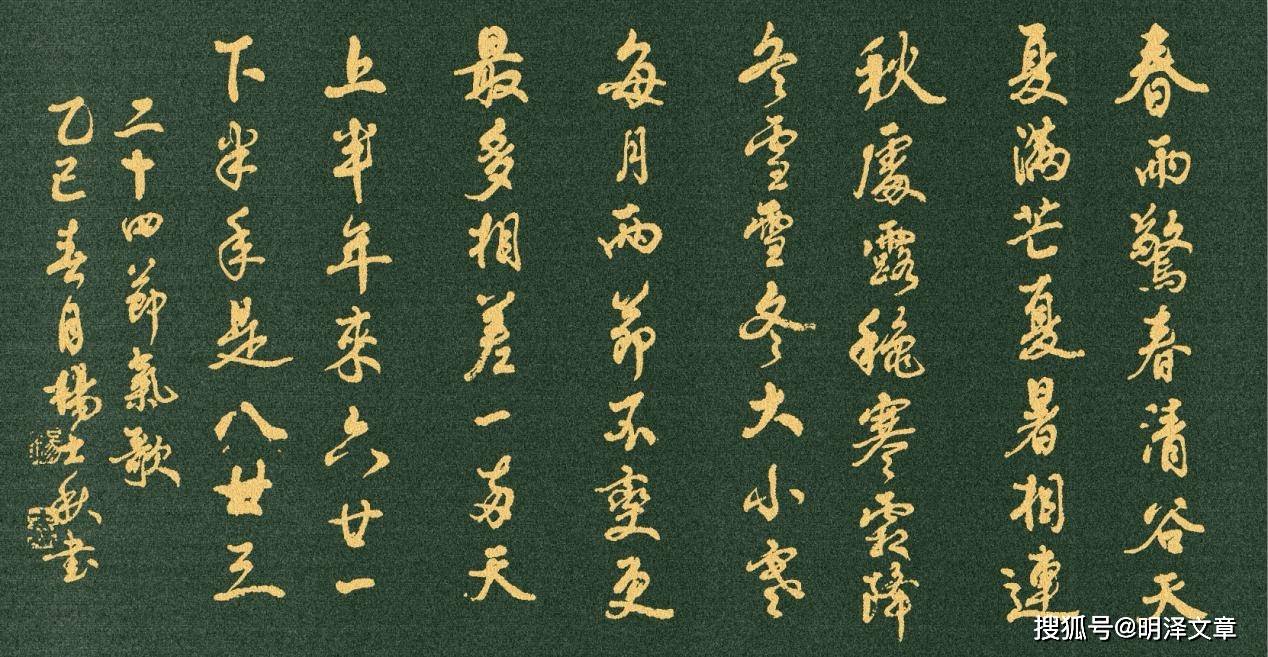 春雨驚春清谷天
夏滿芒夏暑相連
秋處露穐寒霜降
冬雪雪冬大小寒
每月兩節不變更
最多相差一兩天
上半年來六廿一
下半年是八廿三
二十四節氣歌
乙巳春月楊士书
搜狐号@明泽文章